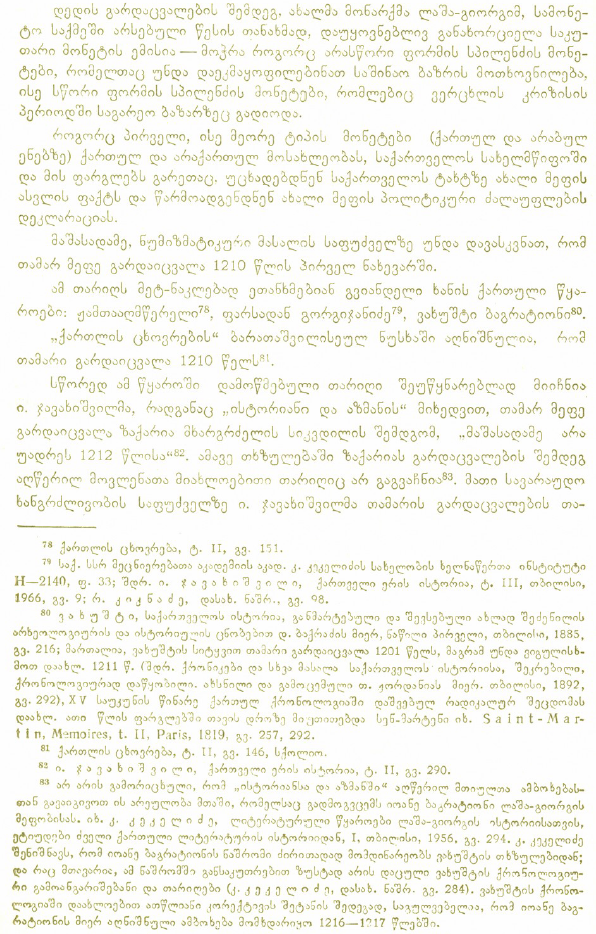 დედის გარდაცვალების შემდეგ, ახალმა მონარქმა ლაშა-გიორგიმ, სამონე-
ტო საქმეში არსებული წესის თანახმად, დაუყოვნებლივ განახორციელა საკუ-
თარი მონეტის ემისია — მოჭრა როგორც არასწორი ფორმის სპილენძის მონე-
ტები, რომელთაც უნდა დაეკმაყოფილებინათ საშინაო ბაზრის მოთხოვნილება,
ისე სწორი ფორმის სპილენძის მონეტები, რომლებიც ვერცხლის კრიზისის
პერიოდში საგარეო ბაზარზეც გადიოდა.
როგორც პირველი, ისე მეორე ტიპის მონეტები (ქართულ და არაბულ
ენებზე) ქართულ და არაქართულ მოსახლეობას, საქართველოს სახელმწიფოში
და მის ფარგლებს გარეთაც, უცხადებდნენ საქართველოს ტახტზე ახალი მეფის
ასვლის ფაქტს და წარმოადგენდნენ ახალი მეფის პოლიტიკური ძალაუფლების
დეკლარაციას.
მაშასადამე, ნუმიზმატიკური მასალის საფუძველზე უნდა დავასკვნათ, რომ
თამარ მეფე გარდაიცვალა 1210 წლის პირველ ნახევარში.
ამ თარიღს მეტ-ნაკლებად ეთანხმებიან გვიანდელი ხანის ქართული წყა-
როები: ჟამთააღმწერელი⁷⁸, ფარსადან გორგიჯანიძე⁷⁹, ვახუშტი ბაგრატიონი⁸⁰.
„ქართლის ცხოვრების“ ბარათაშვილისეულ ნუსხაში აღნიშნულია, რომ
თამარი გარდაიცვალა 1210 წელს⁸¹.
სწორედ ამ წყაროში დამოწმებული თარიღი შეუწყნარებლად მიიჩნია
ი. ჯავახიშვილმა, რადგანაც „ისტორიანი და აზმანის“ მიხედვით, თამარ მეფე
გარდაიცვალა ზაქარია მხარგრძელის სიკვდილის შემდგომ, „მაშასადამე არა
უადრეს 1212 წლისა“⁸². ამავე თხზულებაში ზაქარიას გარდაცვალების შემდეგ
აღწერილ მოვლენათა მიახლოებითი თარიღიც არ გაგვაჩნია⁸³. მათი სავარაუდო
ხანგრძლივობის საფუძველზე ი. ჯავახიშვილმა თამარის გარდაცვალების თა-
⁷⁸ ქართლის ცხოვრება, ტ. II, გვ. 151.
⁷⁹ საქ. სსრ მეცნიერებათა აკადემიის აკად. კ. კეკელიძის სახელობის ხელნაწერთა ინსტიტუტი
H—2140, ფ. 33; შდრ. ი. ჯავახიშვილი, ქართველი ერის ისტორია, ტ. III, თბილისი,
1966, გვ. 9; რ. კიკნაძე, დასახ. ნაშრ., გვ. 98.
⁸⁰ ვახუშტი, საქართველოს ისტორია, განმარტებული და შევსებული ახლად შეძენილის
არხეოლოგიურის და ისტორიულის ცნობებით დ. ბაქრაძის მიერ, ნაწილი პირველი, თბილისი, 1885,
გვ. 216; მართალია, ვახუშტის სიტყვით თამარი გარდაიცვალა 1201 წელს, მაგრამ უნდა ვიგულისხ-
მოთ დაახლ. 1211 წ. (შდრ. ქრონიკები და სხვა მასალა საქართველოს ისტორიისა, შეკრებილი,
ქრონოლოგიურად დაწყობილი, ახსნილი და გამოცემული თ. ჟორდანიას მიერ. თბილისი, 1892,
გვ. 292), XV საუკუნის წინარე ქართულ ქრონოლოგიაში დაშვებულ რადიკალურ შეცდომას
დაახლ. ათი წლის ფარგლებში თავის დროზე მიუთითებდა სენ-მარტენი იხ. Saint-Mar-
tin, Memoires, t. II, Paris, 1819, გვ. 257, 292.
⁸¹ ქართლის ცხოვრება, ტ. II, გვ. 146, სქოლიო.
⁸² ი. ჯავახიშვილი, ქართველი ერის ისტორია, ტ. II, გვ. 290.
⁸³ არ არის გამორიცხული, რომ „ისტორიანსა და აზმანში“ აღწერილ მთიულთა ამბოხებას-
თან გავაიგივოთ ის არეულობა მთაში, რომელსაც გადმოგვცემს იოანე ბაგრატიონი ლაშა-გიორგის
მეფობისას. იხ. კ. კეკელიძე, ლიტერატურული წყაროები ლაშა-გიორგის ისტორიისათვის,
ეტიუდები ძველი ქართული ლიტერატურის ისტორიიდან, I, თბილისი, 1956, გვ. 294. კ. კეკელიძე
შენიშნავს, რომ იოანე ბაგრატიონის ნაშრომი ძირითადად მომდინარეობს ვახუშტის თხზულებიდან;
და რაც მთავარია, ამ ნაშრომში განსაკუთრებით ზუსტად არის დაცული ვახუშტის ქრონოლოგიუ-
რი გამოანგარიშებანი და თარიღები (კ. კეკელიძე, დასახ. ნაშრ. გვ. 284). ვახუშტის ქრონო-
ლოგიაში დაახლოებით ათწლიანი კორექტივის შეტანის შედეგად, საგულვებელია, რომ იოანე ბაგ-
რატიონის მიერ აღნიშნული ამბოხება მომხდარიყო 1216—1217 წლებში.